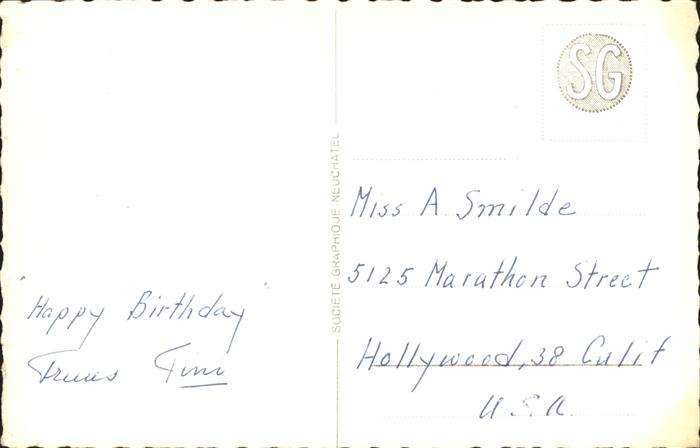 SG
SOCIÉTÉ GRAPHIQUE NEUCHATEL
"Happy Birthday"
Miss A Smilde
5125 Marathon Street
Hollywood, 38 Calif
U.S.A.